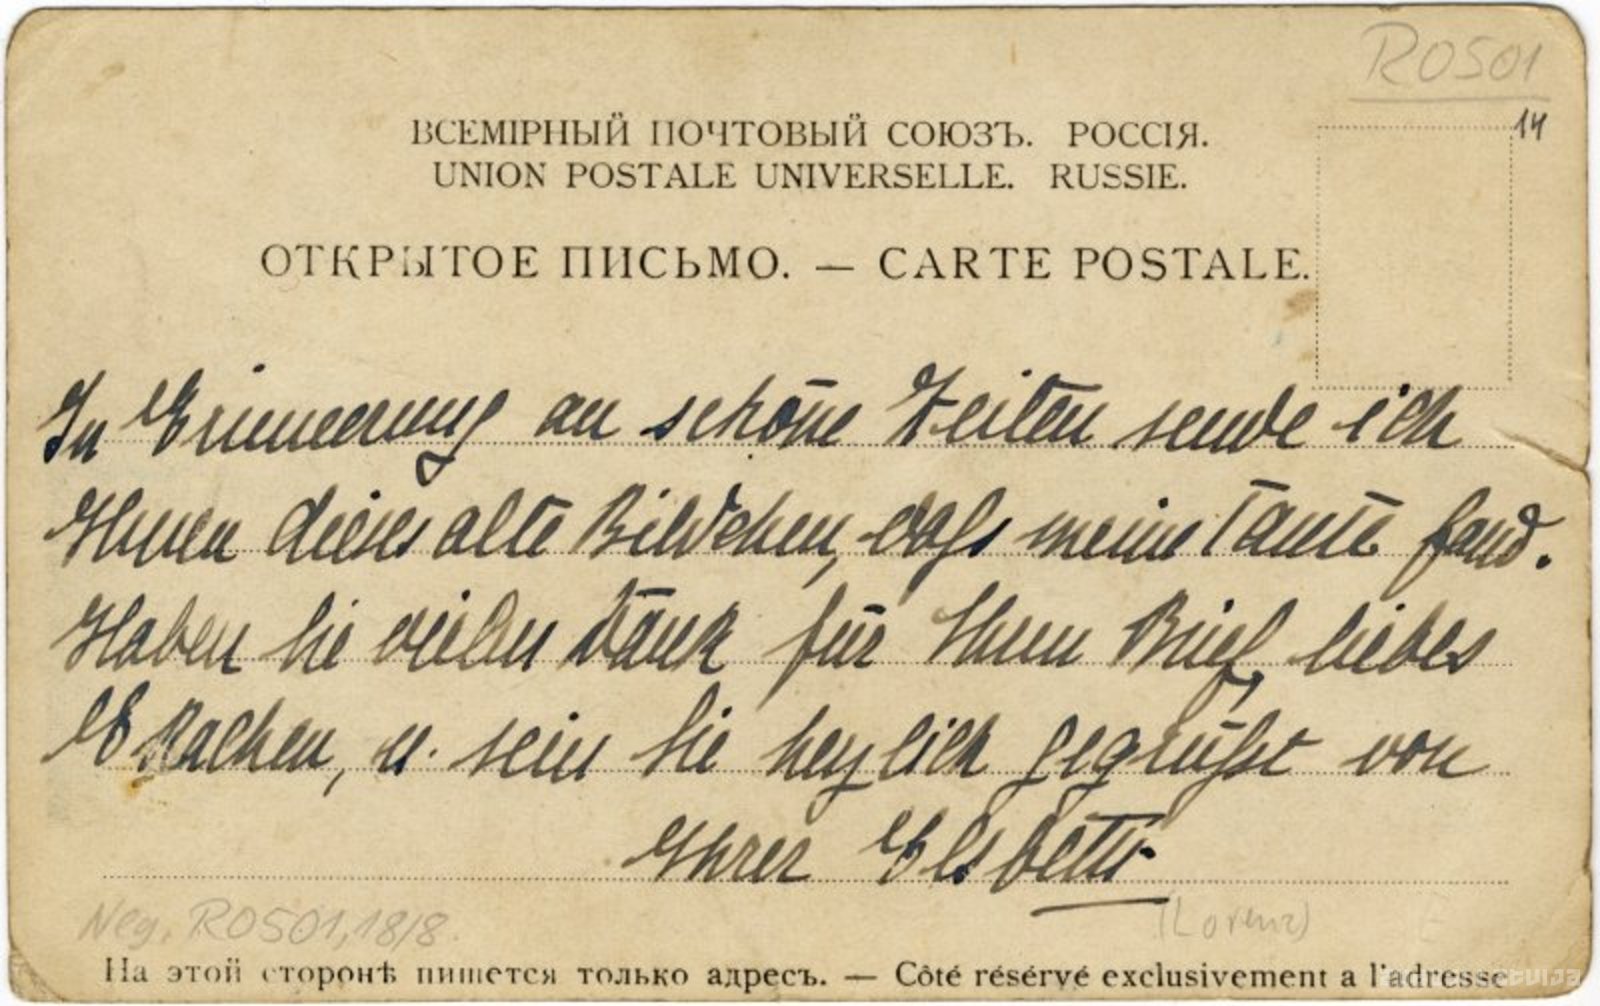 R0501
14
ВСЕМІРНЫЙ ПОЧТОВЫЙ СОЮЗЪ. РОССІЯ.
UNION POSTALE UNIVERSELLE. RUSSIE.
ОТКРЫТОЕ ПИСЬМО. — CARTE POSTALE.
In Erinnerung an schöne Zeiten sende ich
Ihnen dieses alte Bildchen, daß meine Tante fand.
Haben Sie vielen Dank für Ihren Brief, liebes
u. sein Sie herzlich gegrüßt von
Ihrer Elsbeth
Neg. R0501,18/8.
(Lorenz)
E
На этой сторонѣ пишется только адресъ. — Côté résérvé exclusivement a l'adresse